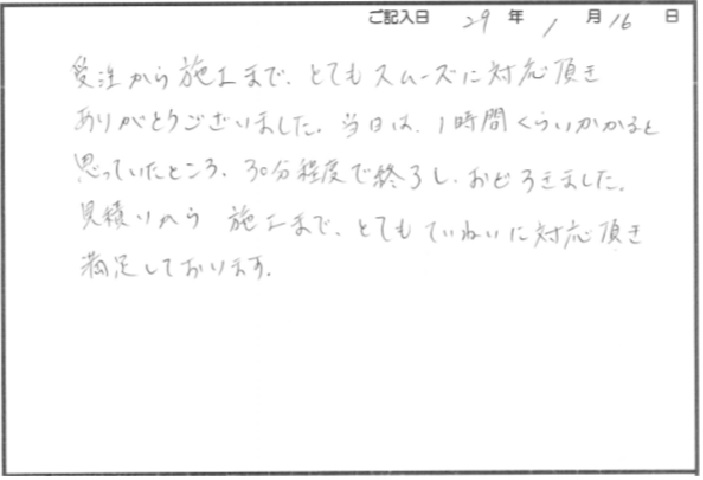 ご記入日 29 年 1 月 16 日
受注から施工まで、とてもスムーズに対応頂き
ありがとうございました。当日は、1時間くらいかかると
思っていたところ、30分程度で終了し、おどろきました。
見積りから 施工まで、とてもていねいに対応頂き
満足しております。